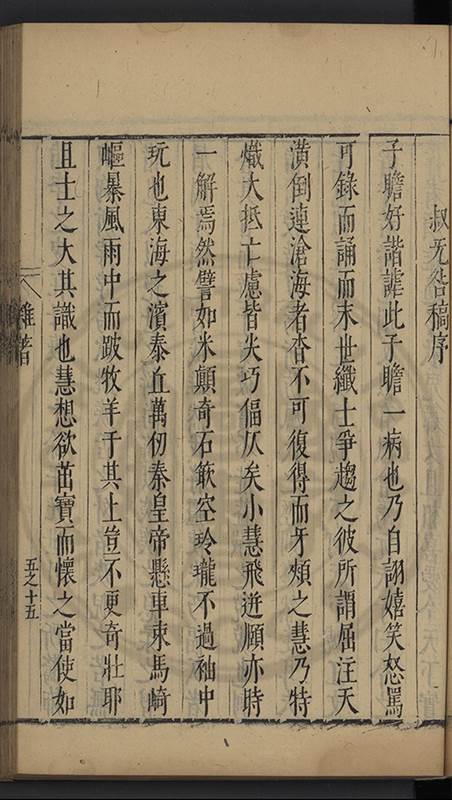 叔旡咎稿序
子瞻好諧謔此子瞻一病也乃自詡嬉笑怒罵
可錄而誦而末世纖士爭趨之彼所謂屈注天
潢倒連滄海者杳不可復得而牙頰之慧乃特
熾大抵亡慮皆尖巧偪仄矣小慧飛迸頋亦時
一解焉然譬如米顛奇石嵌空玲瓏不過袖中
玩也東海之濱泰丘萬仞秦皇帝懸車束馬﨑
嶇暴風雨中而跛牧羊于其上豈不更奇壯耶
且士之大其識也慧想欲苗寶而懷之當使如
雜著
五之十五